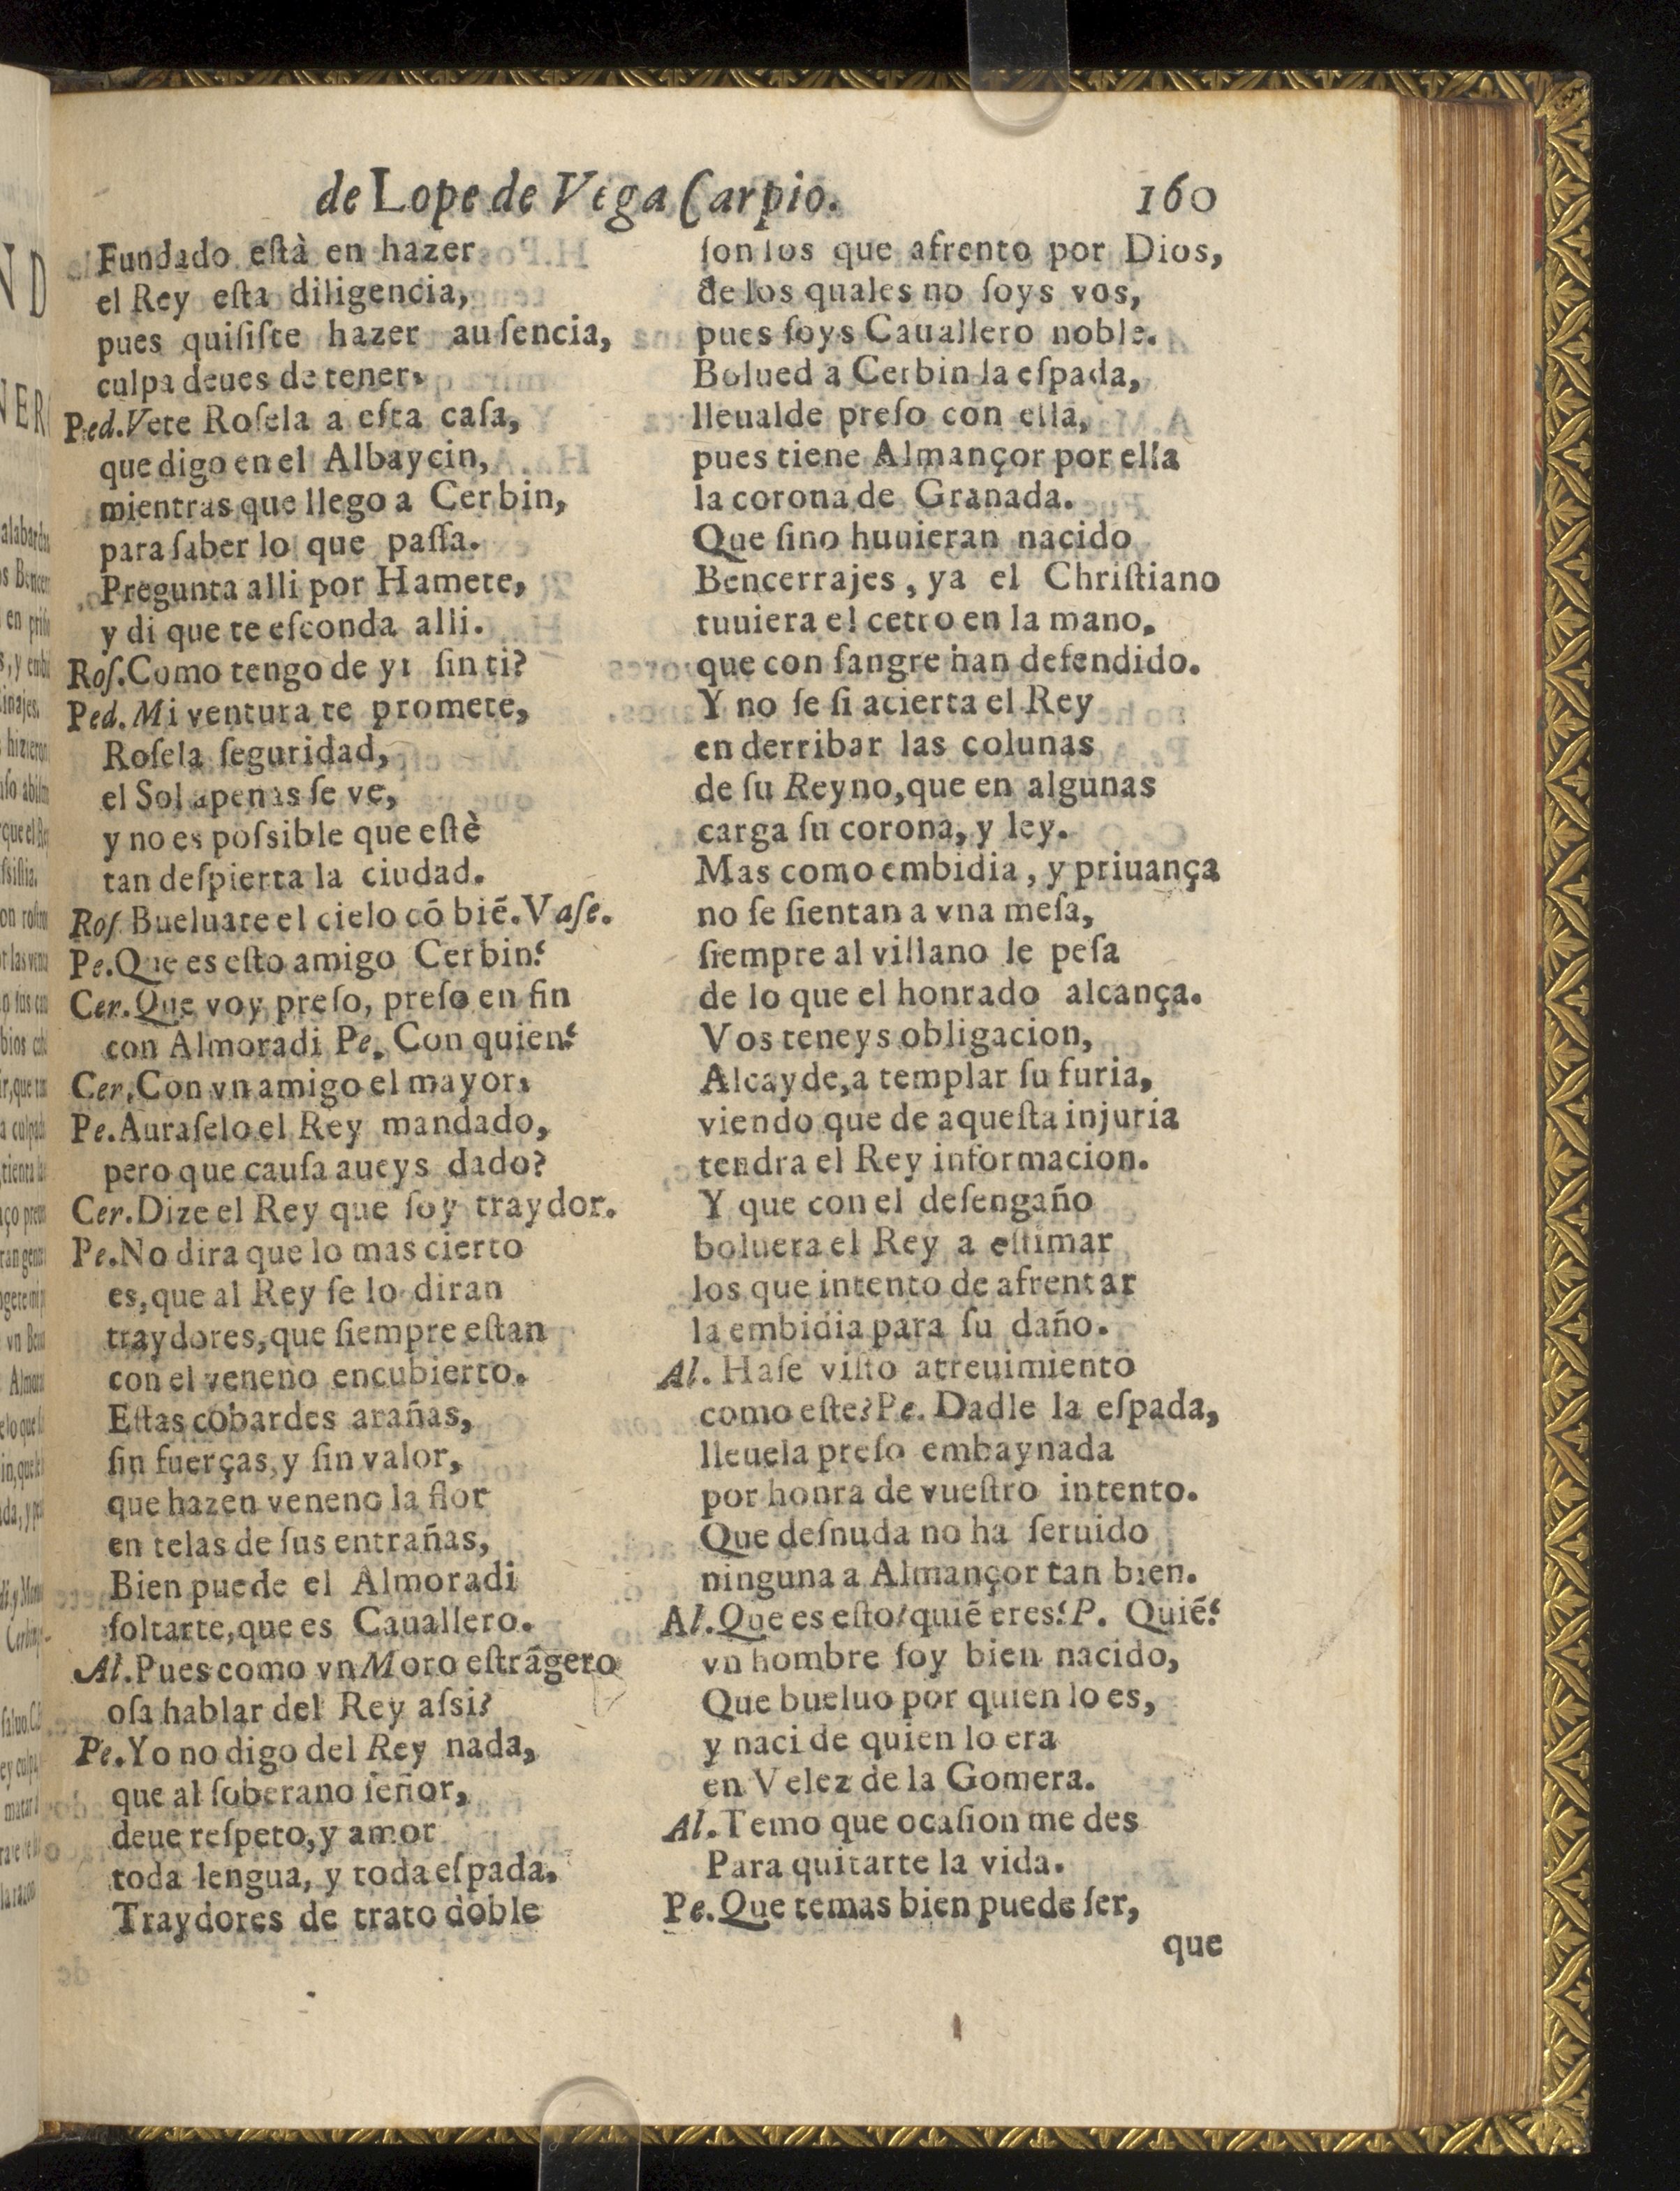 de Lope de Vega Carpio. 160
Fundado eſtà en hazer
el Rey eſta diligencia,
pues quiſiſte hazer auſencia,
culpa deues de tener.
Ped. Vete Roſela a eſta caſa,
que digo en el Albaycin,
mientras que llego a Cerbin,
para ſaber lo que paſſa.
Pregunta alli por Hamete,
y di que te eſconda alli.
Roſ. Como tengo de yr ſin ti?
Ped. Mi ventura te promete,
Roſela ſeguridad,
el Sol apenas ſe ve,
y no es poſsible que eſtè
tan deſpierta la ciudad.
Roſ Bueluate el cielo cõ biẽ. Vaſe.
Pe. Que es eſto amigo Cerbin?
Cer. Que voy preſo, preſo en fin
con Almoradi Pe. Con quien?
Cer. Con vn amigo el mayor.
Pe. Auraſelo el Rey mandado,
pero que cauſa aueys dado?
Cer. Dize el Rey que ſoy traydor.
Pe. No dira que lo mas cierto
es, que al Rey ſe lo diran
traydores, que ſiempre eſtan
con el veneno encubierto.
Eſtas cobardes arañas,
ſin fuerças, y ſin valor,
que hazen veneno la flor
en telas de ſus entrañas,
Bien puede el Almoradi
ſoltarte, que es Cauallero.
Al. Pues como vn Moro eſtrãgero
oſa hablar del Rey aſsi?
Pe. Yo no digo del Rey nada,
que al ſoberano ſeñor,
deue reſpeto, y amor
toda lengua, y toda eſpada.
Traydores de trato doble
ſon los que afrento por Dios,
de los quales no ſoys vos,
pues ſoys Cauallero noble.
Bolued a Cerbin la eſpada,
lleualde preſo con ella,
pues tiene Almançor por ella
la corona de Granada.
Que ſino huuieran nacido
Bencerrajes, ya el Chriſtiano
tuuiera el cetro en la mano,
que con ſangre han defendido.
Y no ſe ſi acierta el Rey
en derribar las colunas
de ſu Reyno, que en algunas
carga ſu corona, y ley.
Mas como embidia, y priuança
no ſe ſientan a vna meſa,
ſiempre al villano le peſa
de lo que el honrado alcança.
Vos teneys obligacion,
Alcayde, a templar ſu furia,
viendo que de aqueſta injuria
tendra el Rey informacion.
Y que con el deſengaño
boluera el Rey a eſtimar
los que intento de afrentar
la embidia para ſu daño.
Al. Haſe viſto atreuimiento
como eſte? Pe. Dadle la eſpada,
lleuela preſo embaynada
por honra de vueſtro intento.
Que deſnuda no ha ſeruido
ninguna a Almançor tan bien.
Al. Que es eſto? quiẽ eres? P. Quiẽ?
vn hombre ſoy bien nacido,
Que bueluo por quien lo es,
y naci de quien lo era
en Velez de la Gomera.
Al. Temo que ocaſion me des
Para quitarte la vida.
Pe. Que temas bien puede ſer,
que